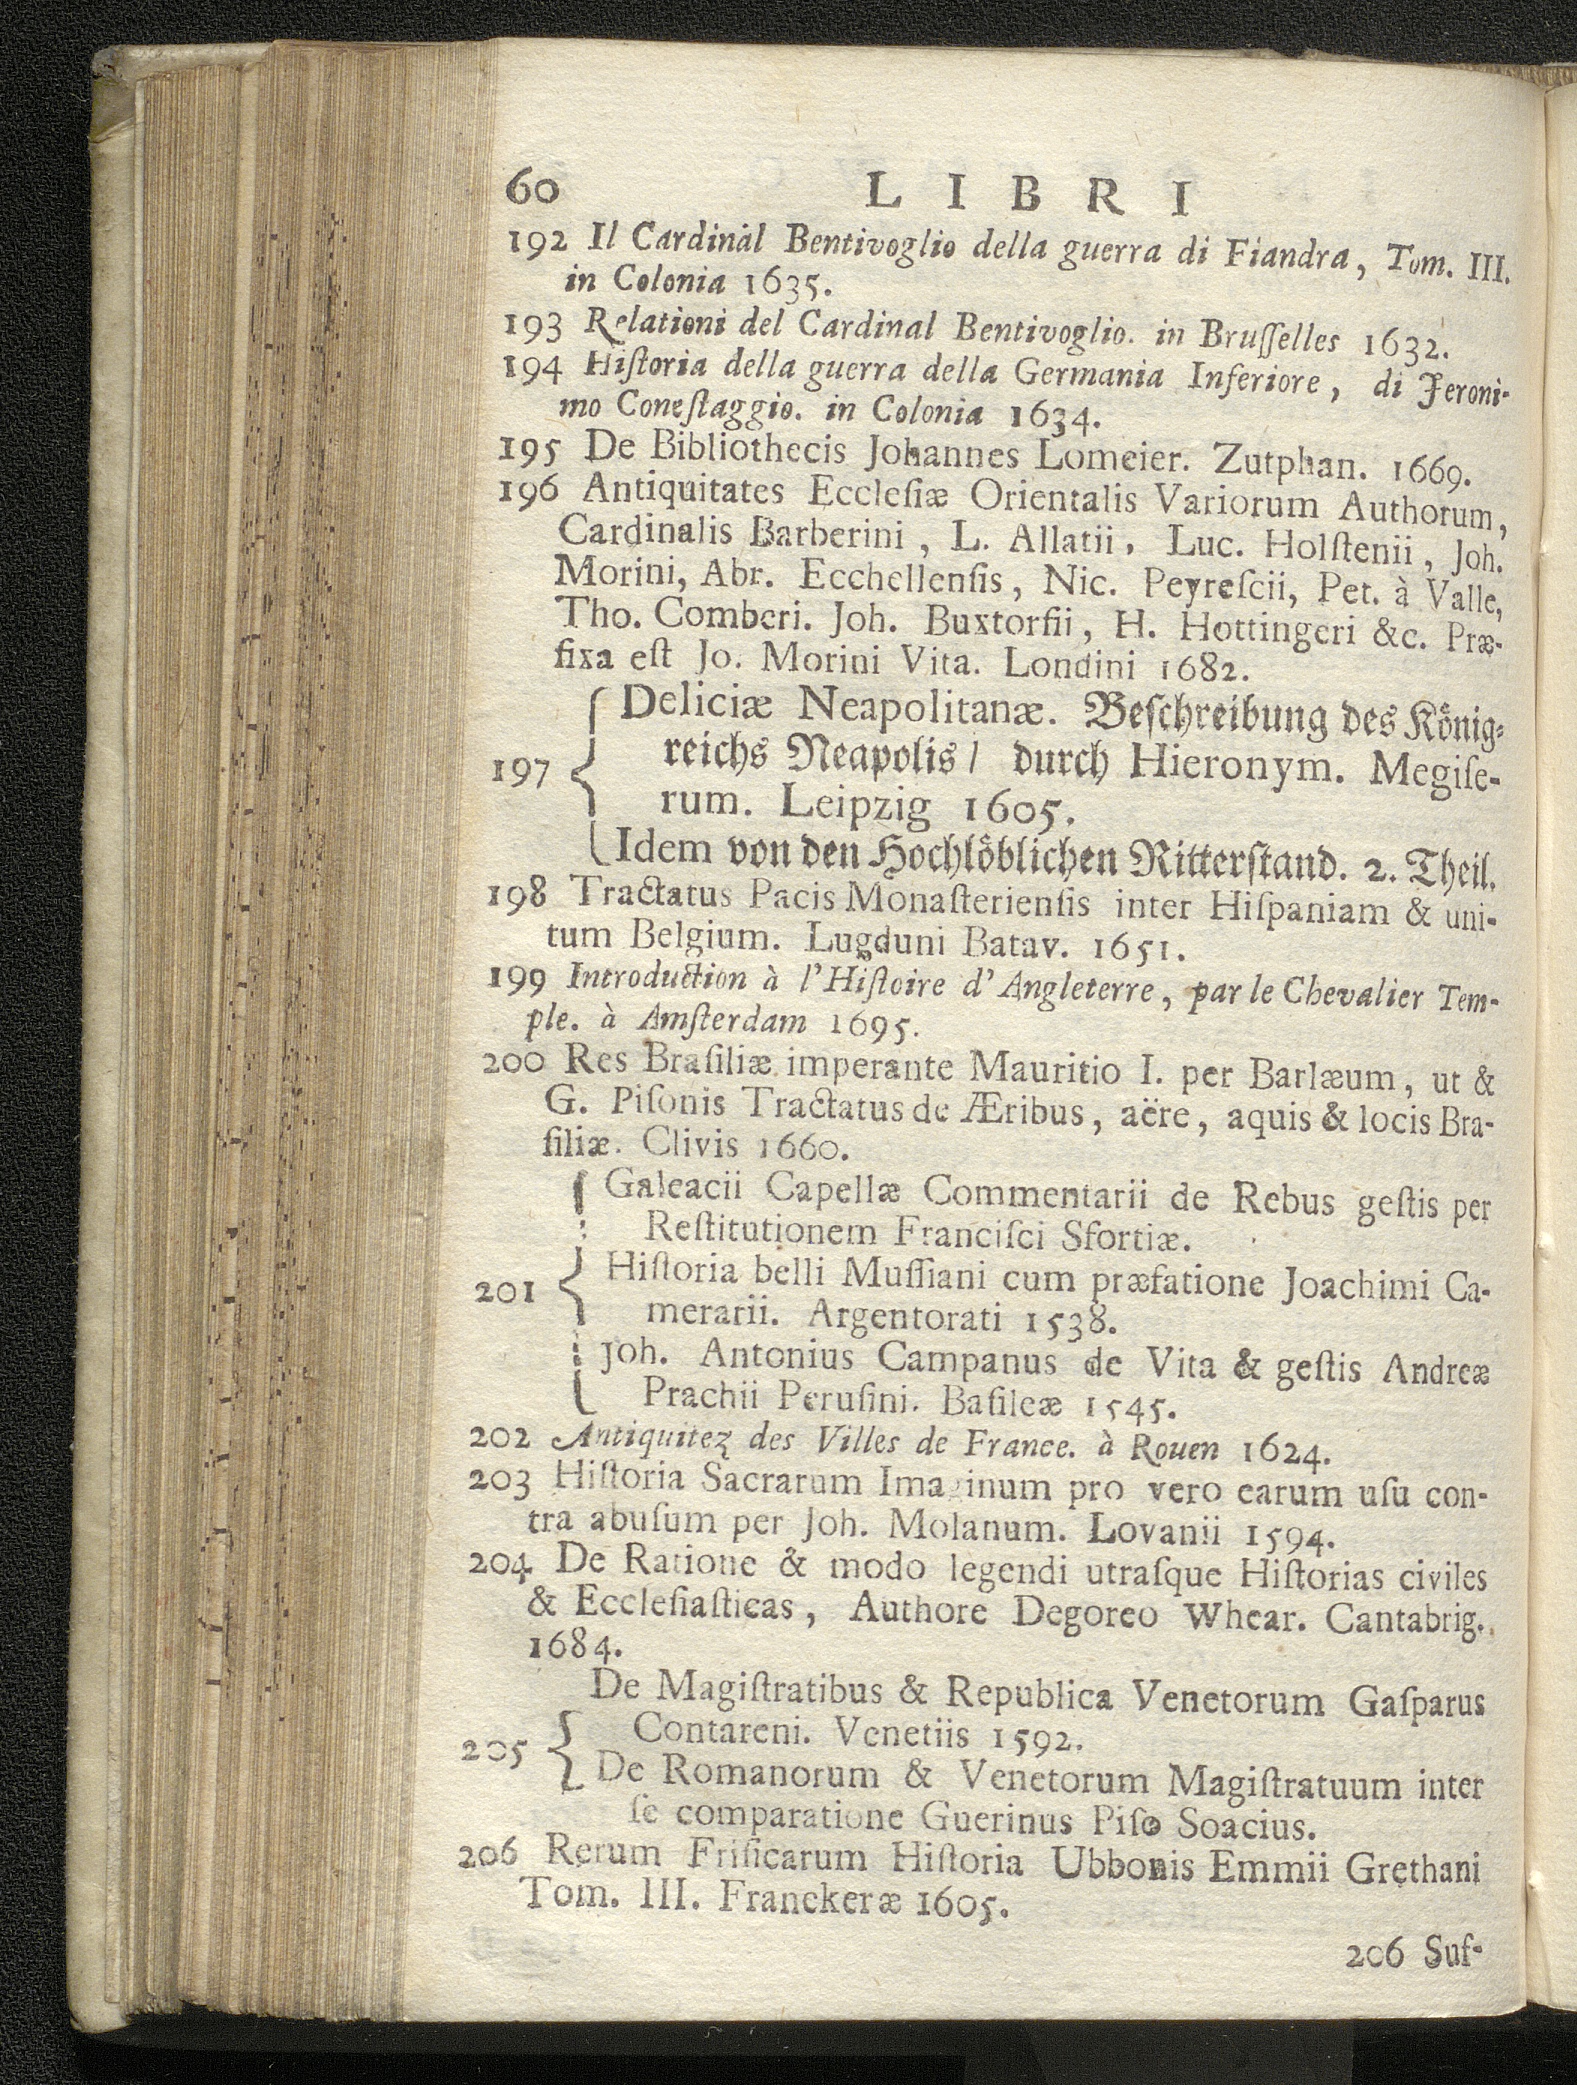 60 LIBRI
192 Il Cardinal Bentivoglio della guerra di Fiandra, Tom. III.
in Colonia 1635.
193 Relationi del Cardinal Bentivoglio. in Bruſſelles 1632.
194 Hiſtoria della guerra della Germania Inferiore, di Jeroni-
mo Coneſtaggio. in Colonia 1634.
195 De Bibliothecis Johannes Lomeier. Zutphan. 1669.
196 Antiquitates Eccleſiæ Orientalis Variorum Authorum,
Cardinalis Barberini, L. Allatii, Luc. Holſtenii, Joh.
Morini, Abr. Ecchellenſis, Nic. Peyreſcii, Pet. à Valle,
Tho. Comberi. Joh. Buxtorfii, H. Hottingeri &c. Præ-
fixa eſt Jo. Morini Vita. Londini 1682.
Deliciæ Neapolitanæ. Beſchreibung des Koͤnig-
reichs Neapolis / durch Hieronym. Megiſe-
197
rum. Leipzig 1605.
Idem von den Hochloͤblichen Ritterſtand. 2. Theil.
198 Tractatus Pacis Monaſterienſis inter Hiſpaniam & uni-
tum Belgium. Lugduni Batav. 1651.
199 Introduction à l'Hiſtoire d'Angleterre, par le Chevalier Tem-
ple. à Amſterdam 1695.
200 Res Braſiliæ imperante Mauritio I. per Barlæum, ut &
G. Piſonis Tractatus de Æribus, aëre, aquis & locis Bra-
ſiliæ. Clivis 1660.
Galeacii Capellæ Commentarii de Rebus geſtis per
Reſtitutionem Franciſci Sfortiæ.
201 Hiſtoria belli Muſſiani cum præfatione Joachimi Ca-
merarii. Argentorati 1538.
Joh. Antonius Campanus de Vita & geſtis Andreæ
Prachii Peruſini. Baſileæ 1545.
202 Antiquitez des Villes de France. à Rouen 1624.
203 Hiſtoria Sacrarum Imaginum pro vero earum uſu con-
tra abuſum per Joh. Molanum. Lovanii 1594.
204 De Ratione & modo legendi utraſque Hiſtorias civiles
& Eccleſiaſticas, Authore Degoreo Whear. Cantabrig.
1684.
De Magiſtratibus & Republica Venetorum Gaſparus
Contareni. Venetiis 1592.
205
De Romanorum & Venetorum Magiſtratuum inter
ſe comparatione Guerinus Piſo Soacius.
206 Rerum Friſicarum Hiſtoria Ubbonis Emmii Grethani
Tom. III. Franckeræ 1605.
206 Suf-